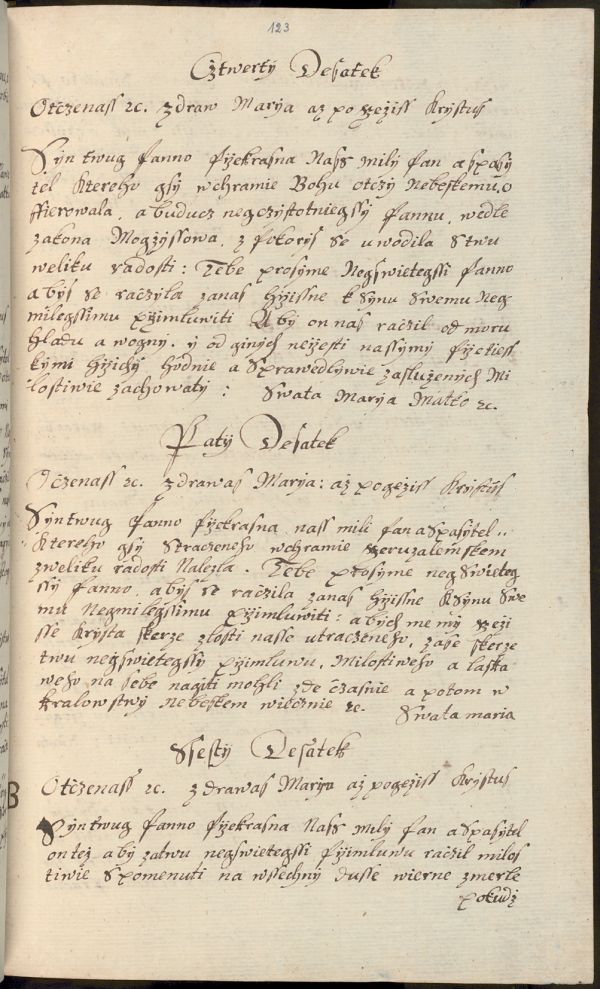 123
Cžtwerty Desatek
Otčzenass ꝛc. zdraw Marya až po Ježiss Krystus
Syn twug Panno Przekrasna Nass mily Pan a spasy
tel ktereho gsy w chramie Bohu otczy Nebeskemu o
ffierowala, a buducz negczystotniegssy Pannu, wedle
zakona Mogžyssowa, z pokory se uwodila s twu
weliku radosti: Tebe prosyme Negswietegssi Panno
abys se račzyla zanas hrzissne k Synu swemu Neg-
milegssimu przimluwiti Aby on nas račzil od moru
hladu a wogny, y od ginych neržesti nassymy przetiess
kymi hrzichy hodnie a sprawedlywie zasluženych Mi
lostiwie zachowaty: Swata Marya Matko ꝛc.
Paty Desatek
Otčzenass ꝛc. zdrawas Marya: až po gežiss Krystus
Syn twug Panno Przekrasna nass mili Pan a Spasytel
kterého gsy straczeneho w chramie Jeruzalemskem
z weliku radosti Nalezla. Tebe prosyme negswieteg
ssy Panno, abys se račzila zanas hrzissne k Synu Swe
mu Negmilegssimu przimluwiti: abychme my Ježi
sse Krysta skrze zlosti nasse utraczeneho, zase skrze
twu negswietegssy przimluwu, Milostiweho a laska
weho na sebe nagiti mohli zde čzasnie a potom w
kralowstwy nebeskem wiecznie ꝛc. Swata maria
Ssesty Desatek
Otčzenass ꝛc. zdrawas Marya až po gežiss Krystus
Syn twug Panno Przekrasna Nass mily Pan a Spasytel
on též aby za twu negswietegssi przimluwu račzil milos
tiwie spomenuti na wssechny Dusse wierne zmerle
pokudž